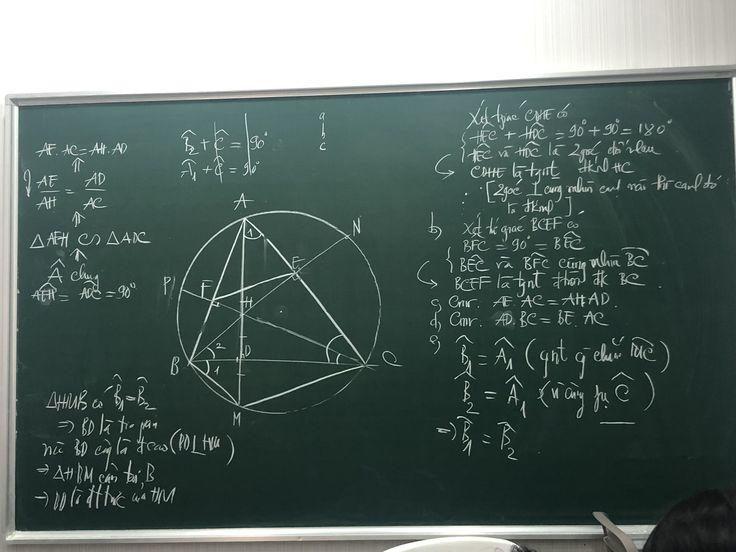 AE. AC = AH. AD
⇑
AE/AH = AD/AC
⇑
△AEH ∽ △ADC
⇑
Â chung
AÊH = AD̂C = 90°
B̂₂ + Ĉ = 90°
Â₁ + Ĉ = 90°
a
b
c
A
1
N
E
P
F
H
B
2
1
D
C
M
△HMB có B̂₁ = B̂₂
⇒ BD là tia phân
mà BD cũng là đ cao (BD⊥HM)
⇒ △HBM cân tại B
⇒ BD là đ tr trực của HM
Xét tứ giác CDHE có
HÊC + HD̂C = 90° + 90° = 180°
HÊC và HD̂C là 2 góc đối nhau
CDHE là tgnt đkính HC
b) Xét tứ giác BCEF có
BF̂C = 90° = BÊC
BÊC và BF̂C cùng nhìn BC
BCEF là tgnt đtròn đk BC
c) Cmr. AE. AC = AH. AD.
d) Cmr. AD. BC = BE. AC
B̂₁ = Â₁ (gnt chắn MC)
B̂₂ = Â₁ (vì cùng phụ Ĉ)
⇒ B̂₁ = B̂₂